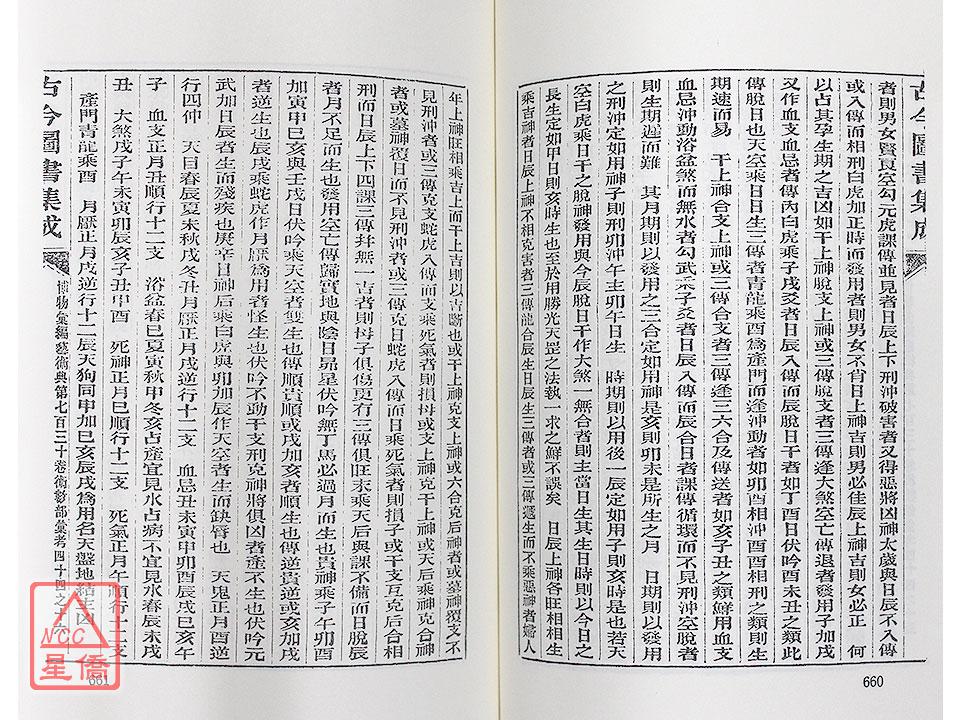 古今圖書集成
者則男女賢良空勾元虎課傳並見者日辰上下刑沖破害者又得惡將凶神太歲與日辰不入傳
或入傳而相刑白虎加正時而發用者則男女不肖日上神吉則男必佳辰上神吉則女必正　何
以占其孕生期之吉凶如干上神脫支上神或三傳脫支者三傳逢大煞空亡傳退者發用子加戌
又作血支血忌者傳內白虎乘子戌爻者日辰入傳而辰脫日干者如丁酉日伏吟酉未丑之類此
傳脫日也天空乘日日生三傳者青龍乘酉爲產門而逢沖動者如卯酉相沖酉酉相刑之類則生
期速而易　干上神合支上神或三傳合支者三傳逢三六合及傳送者如亥子丑之類鮮用血支
血忌沖動浴盆煞而無水者勾武乘子爻者日辰入傳而辰合日者課傳循環而不見刑沖空脫者
則生期遲而難　其月期則以發用之三合定如用神是亥則卯未是所生之月　日期則以發用
之刑沖定如用神子則刑卯沖午主卯午日生　時期則以用後一辰定如用子則亥時是也若天
空白虎乘日干之脫神發用與今辰脫日干作大煞一無合者則主當日生其生日時則以今日之
長生定如甲日則亥時生也至於用勝光天罡之法執一求之鮮不誤矣　日辰上神各旺相相生
乘吉神者日辰上神不相克害者三傳龍合辰生日辰生三傳者或三傳遞生而不乘惡神者婦人
年上神旺相乘吉上而干上吉則以吉斷也或干上神克支上神或六合克后神者或墓神覆支不
見刑沖者或三傳克支蛇虎入傳而支乘死氣者則損母或支上神克干上神或天后乘神克合神
者或墓神覆日而不見刑沖者或三傳克日蛇虎入傳而日乘死氣者則損子或干支互克后合相
刑而日辰上下四課三傳幷無一吉者則母子俱傷更有三傳俱旺末乘天后與課不備而日脫辰
者月不足而生也發用空亡傳歸實地與陰日昴星伏吟無丁馬必過月而生也貴神乘子午卯酉
加寅申巳亥與壬戌日伏吟乘天空者雙生也傳順貴順或戌加亥者順生也傳逆貴逆或亥加戌
者逆生也辰戌乘蛇虎作月厭爲用者怪生也伏吟不動干支刑克神將俱凶者逢不生也伏吟元
武加日辰者生而殘疾也庚辛日神后乘白虎與卯加辰作天空者生而缺脣也　天鬼正月酉逆
行四仲　天目春辰夏未秋戌冬丑月厭正月戌逆行十二支　血忌丑未寅申卯酉辰戌巳亥午
子　血支正月丑順行十二支　浴盆春巳夏寅秋甲冬亥占產宜見水占病不宜見水春辰未戌
丑　大煞戌子午未寅卯辰亥子丑申酉　死神正月巳順行十二支　死氣正月午順行十二支
產門青龍乘酉　月厭正月戌逆行十二辰天狗同申加巳亥辰戌爲用名天盤地結主凶
古今圖書集成
博物彙編藝術典第七百三十卷術數部彙考四十四之
660
661
NCC
古
星僑